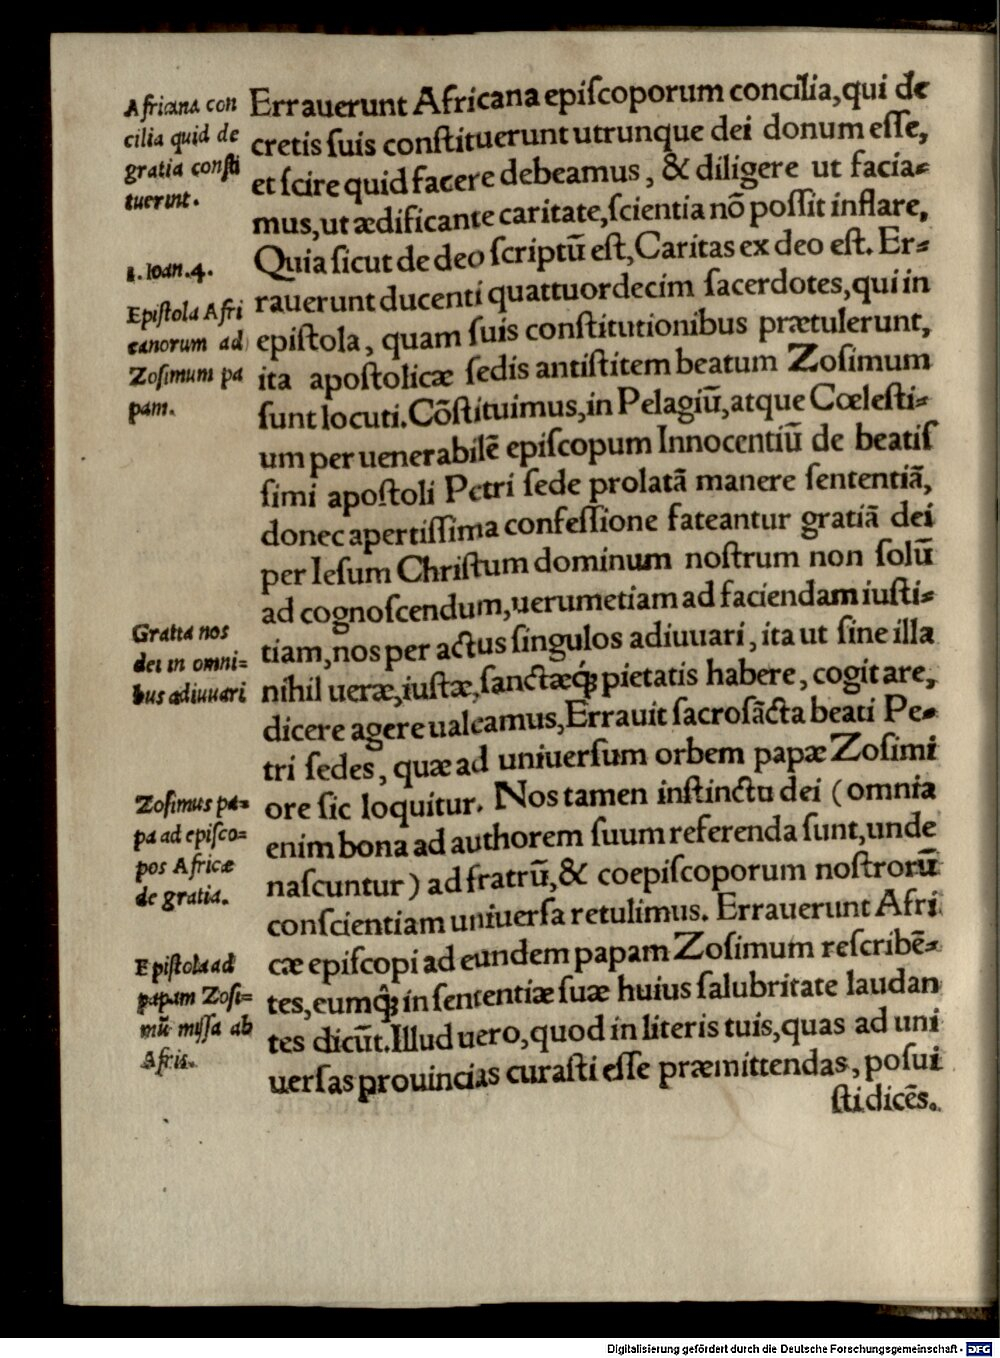 Africana con
cilia quid de
gratia consti
tuerint.
1. Ioan.4.
Epistola Afri
canorum ad
Zosimum pa
pam.
Gratia nos
dei in omni=
bus adiuuari
Zosimus pa=
pa ad episco=
pos Africæ
de gratia.
Epistola ad
papam Zosi=
mũ missa ab
Afris.
Errauerunt Africana episcoporum concilia,qui de
cretis suis constituerunt utrunque dei donum esse,
et scire quid facere debeamus, & diligere ut facia=
mus,ut ædificante caritate,scientia nõ possit inflare,
Quia sicut de deo scriptũ est,Caritas ex deo est. Er=
rauerunt ducenti quattuordecim sacerdotes,qui in
epistola, quam suis constitutionibus prætulerunt,
ita apostolicæ sedis antistitem beatum Zosimum
sunt locuti.Cõstituimus,in Pelagiũ,atque Cœlesti=
um per uenerabilẽ episcopum Innocentiũ de beatis
simi apostoli Petri sede prolatã manere sententiã,
donec apertissima confessione fateantur gratiã dei
per Iesum Christum dominum nostrum non solũ
ad cognoscendum,uerumetiam ad faciendam iusti=
tiam,nos per actus singulos adiuuari, ita ut sine illa
nihil ueræ,iustæ,sanctæq; pietatis habere, cogitare,
dicere agere ualeamus,Errauit sacrosãcta beati Pe=
tri sedes, quæ ad uniuersum orbem papæ Zosimi
ore sic loquitur. Nos tamen instinctu dei (omnia
enim bona ad authorem suum referenda sunt,unde
nascuntur) ad fratrũ,& coepiscoporum nostrorũ
conscientiam uniuersa retulimus. Errauerunt Afri
cæ episcopi ad eundem papam Zosimum rescribẽ=
tes,eumq; in sententiæ suæ huius salubritate laudan
tes dicũt.Illud uero,quod in literis tuis,quas ad uni
uersas prouincias curasti esse præmittendas, posui
sti dicẽs.
Digitalisierung gefördert durch die Deutsche Forschungsgemeinschaft - DFG